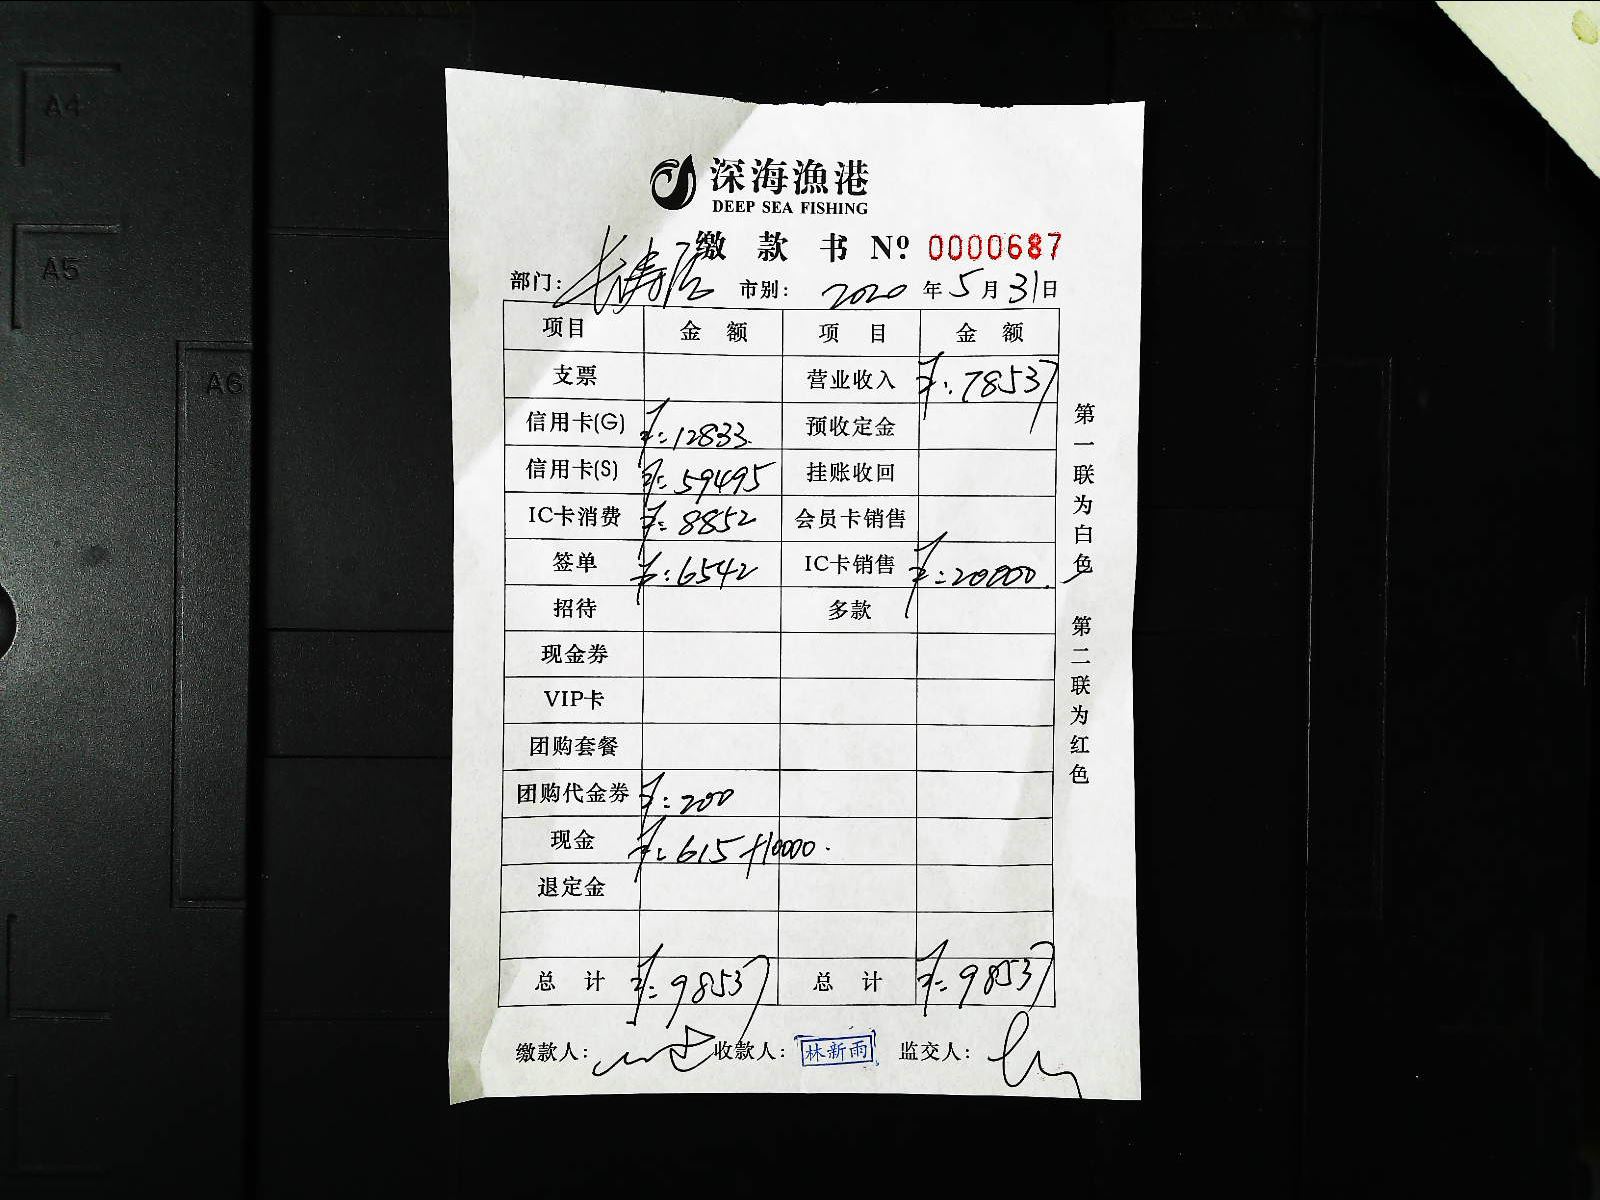 A4
A5
A6
深海渔港
DEEP SEA FISHING
缴款书 Nº: 0000687
部门: 长寿店 市别: 2020年5月31日
项目 金额 项目 金额
支票 营业收入 ¥:78537
信用卡(G) ¥:12833. 预收定金
信用卡(S) ¥:59495 挂账收回
IC卡消费 ¥:8852 会员卡销售
签单 ¥:6542 IC卡销售 ¥:20000.
招待 多款
现金券
VIP卡
团购套餐
团购代金券 ¥:200
现金 ¥:615+10000.
退定金
总计 ¥:98537 总计 ¥:98537
缴款人: 收款人: 林新雨 监交人:
第一联为白色 第二联为红色